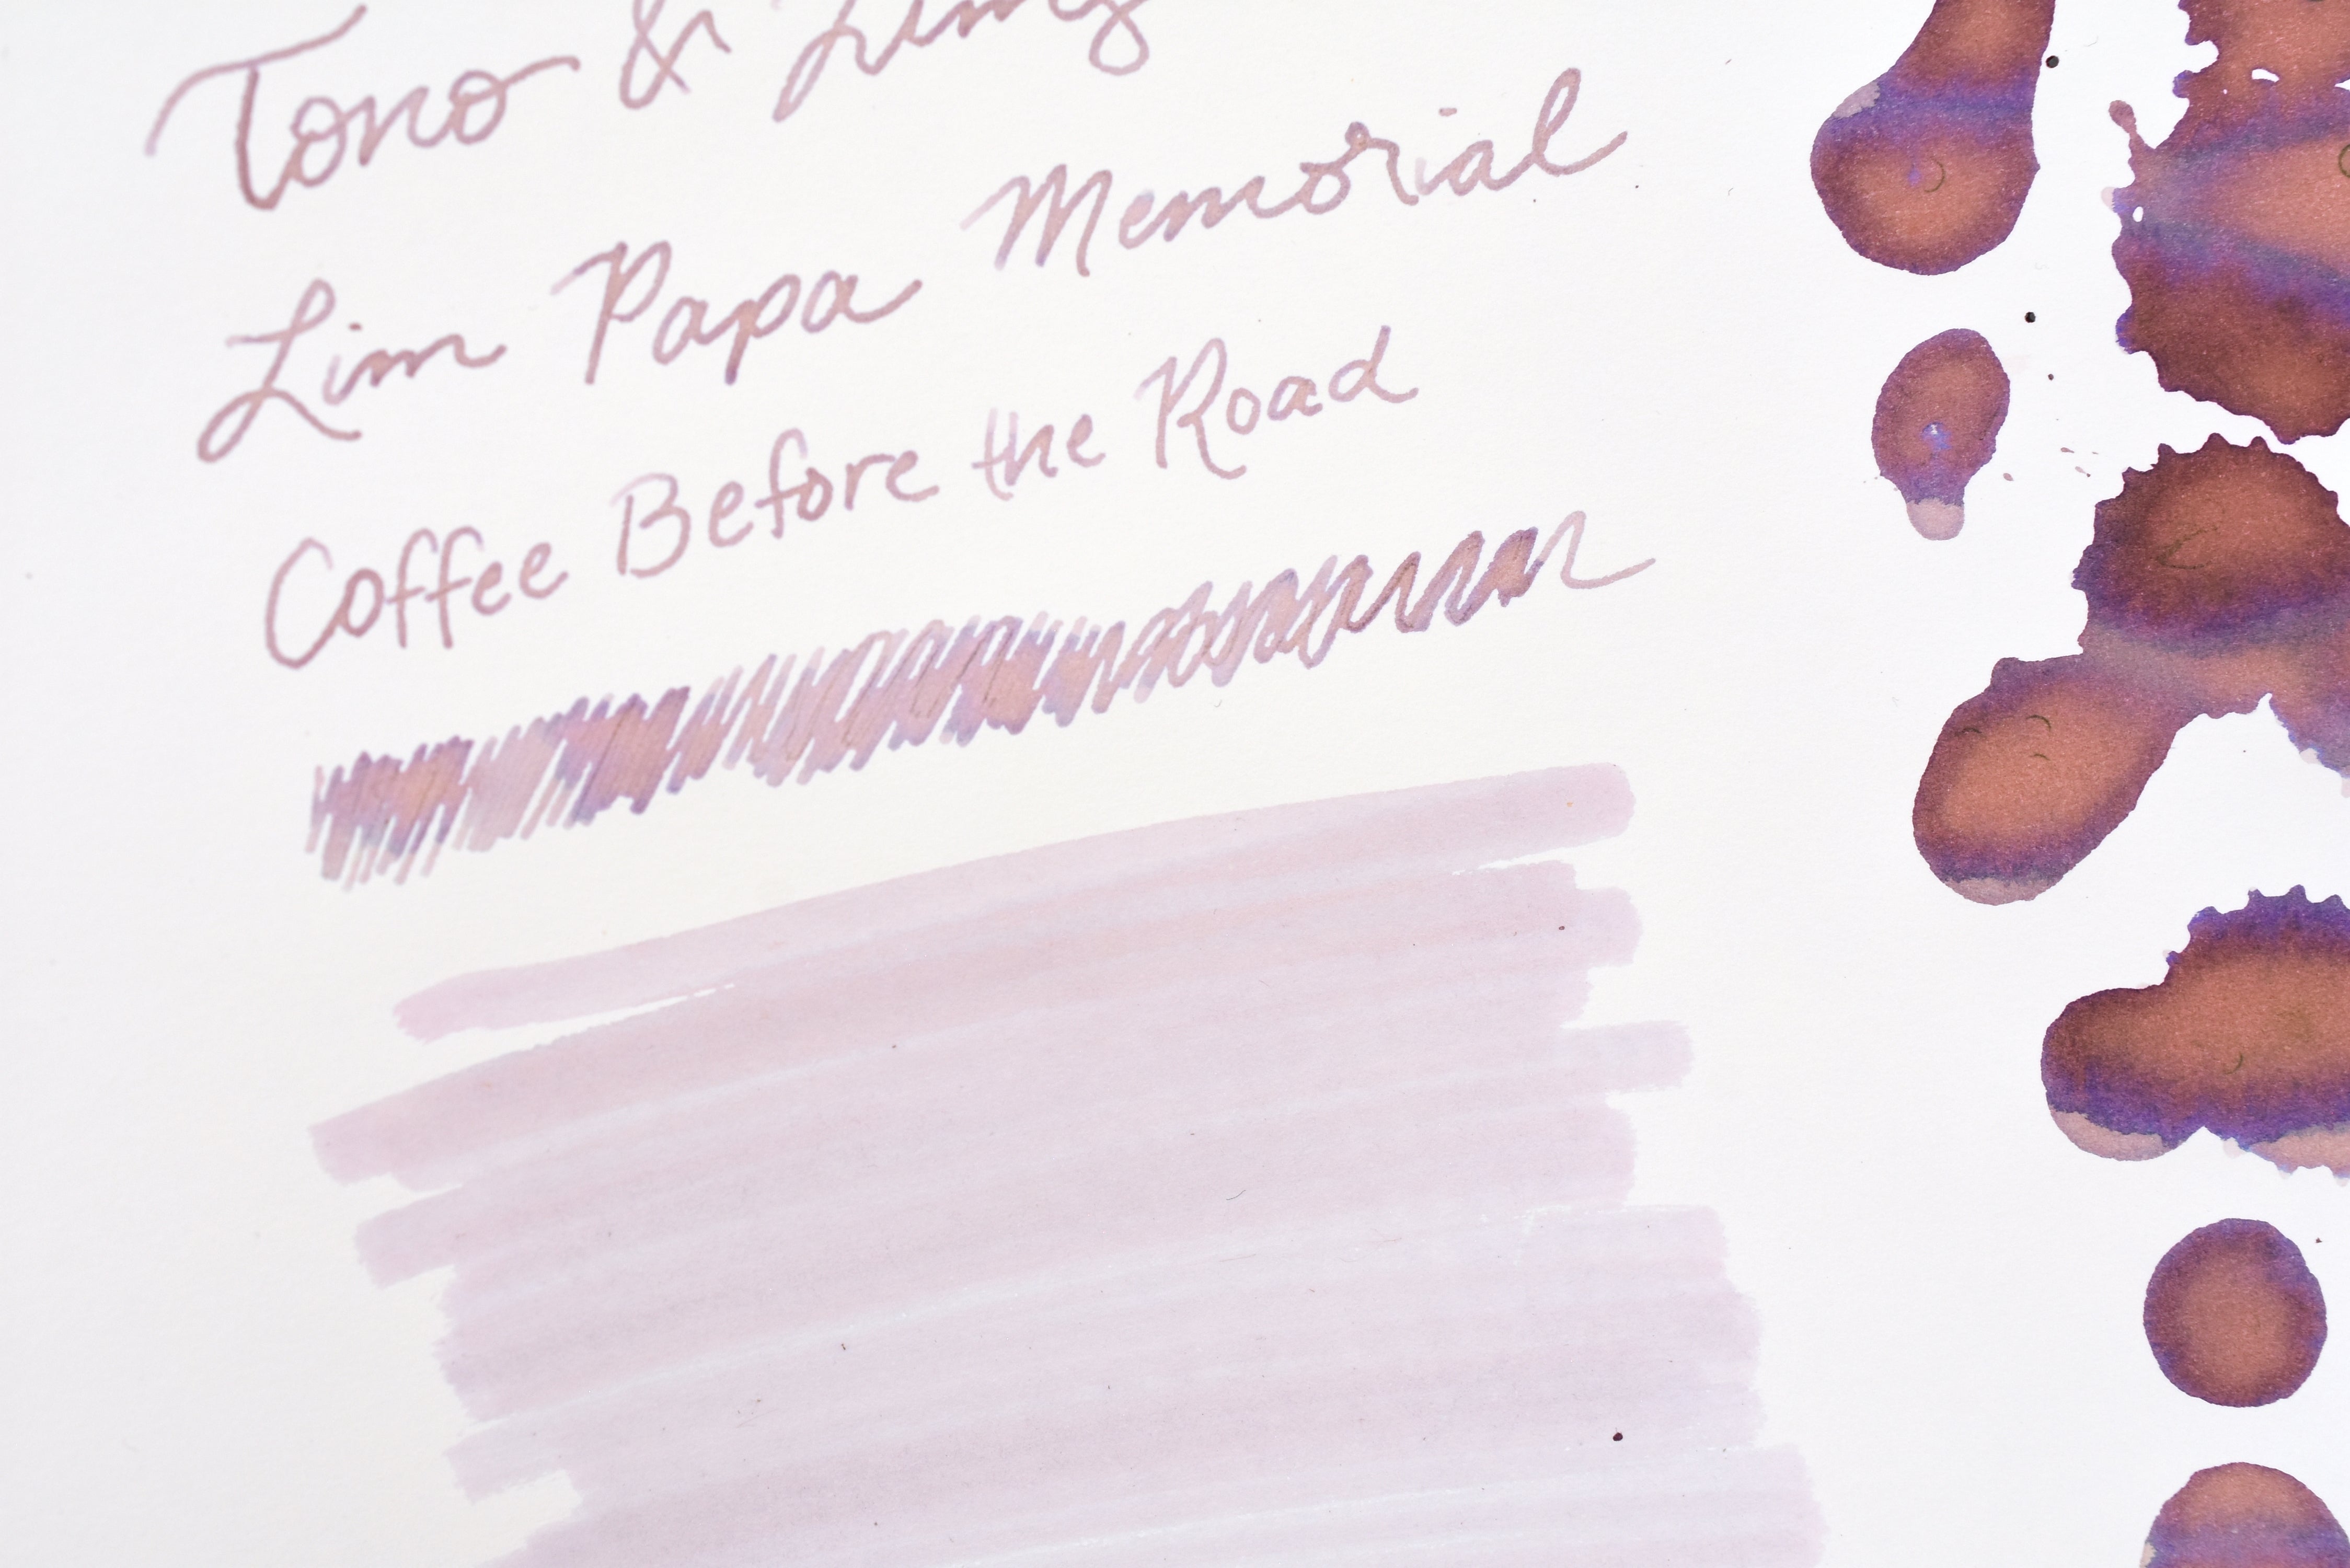 Tono & Lims
Lim Papa Memorial
Coffee Before the Road